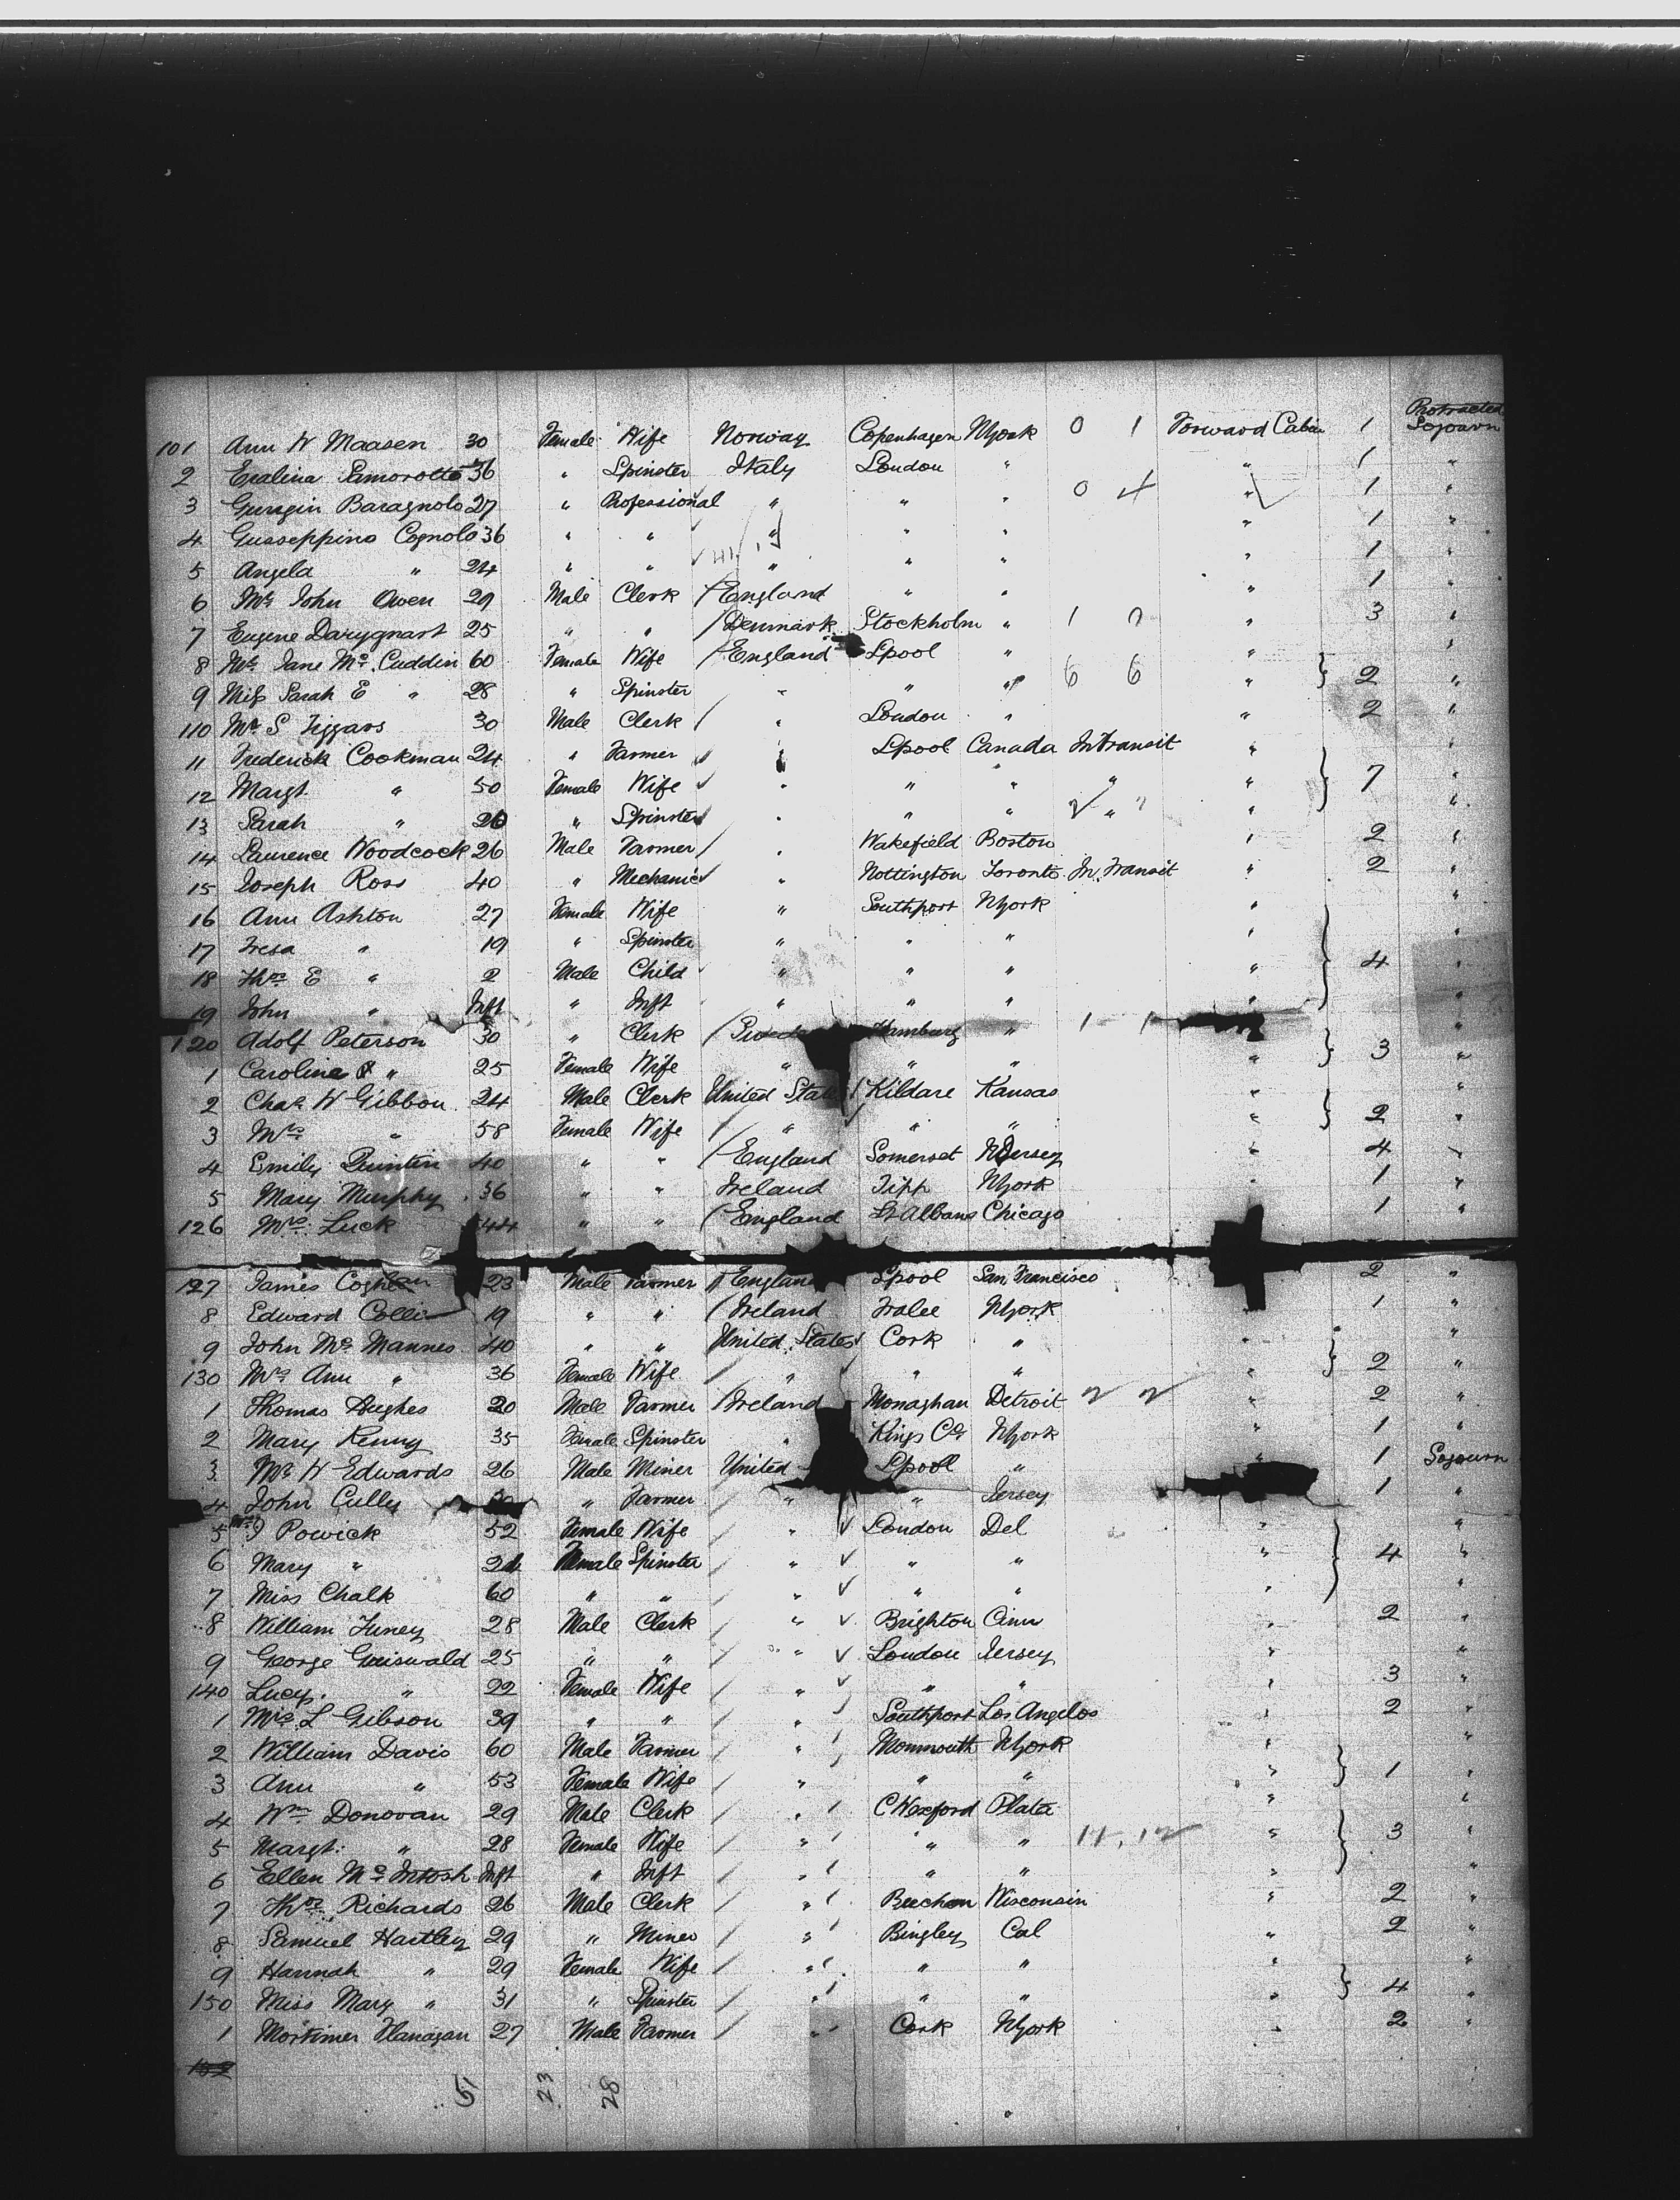 Protracted
101 Ann W Maasen 30 Female Wife Norway Copenhagen NYork 0 1 Forward Cabin 1 Sojourn
2 Eralina Samorotto 36 " Spinster Italy London " " 1 "
3 Guragin Baragnolo 27 " Professional " " " 0 4 " 1 "
4 Guaseppino Cognolo 36 " " " " " " 1 "
5 Angela " 24 " " " " " " 1 "
6 Mr John Owen 29 Male Clerk England " " " 1 "
7 Eugene Darygnart 25 " " Denmark Stockholm " 1 " 3 "
8 Mrs Jane Mc Cuddin 60 Female Wife England Lpool " " "
9 Miss Sarah E " 28 " Spinster " " " 6 6 " 2 "
110 Mr S Jiggars 30 Male Clerk " London " " 2 "
11 Frederick Cookman 24 " Farmer " Lpool Canada In Transit " "
12 Margt. " 50 Female Wife " " " " " 7 "
13 Sarah " 20 " Spinster " " " " " "
14 Laurence Woodcock 26 Male Farmer " Wakefield Boston " 2 "
15 Joseph Ross 40 " Mechanic " Nottington Toronto In Transit " 2 "
16 Ann Ashton 27 Female Wife " Southport NYork " "
17 Tresa " 19 " Spinster " " " " "
18 Thos E " 2 Male Child " " " " 4 "
19 John " Inft " Inft " " " " "
120 Adolf Peterson 30 " Clerk Hamburg " 1 1 "
1 Caroline " 25 Female Wife " " " " 3 "
2 Chas W Gibbon 24 Male Clerk United States Kildare Kansas " "
3 Mrs " 58 Female Wife " " " " 2 "
4 Emily Quintin 40 " " England Somerset NJersey " 4 "
5 Mary Murphy 36 " " Ireland Tipp NYork " 1 "
126 Mrs Luck 44 " " England St Albans Chicago 1 "
127 James Coghlan 23 Male Farmer England Lpool San Francisco 2 "
8 Edward Colli 19 " " Ireland Tralee NYork 1 "
9 John Mc Mannes 40 " " United States Cork " " "
130 Mrs Ann " 36 Female Wife " " " " 2 "
1 Thomas Hughes 20 Male Farmer Ireland Monaghan Detroit 2 2 " 2 "
2 Mary Kenny 35 Female Spinster " Kings Co NYork " 1 "
3 Mr W Edwards 26 Male Miner United Lpool " " 1 Sojourn
4 John Cully " Farmer " " Jersey 1 "
5 Powick 52 Female Wife " London Del " "
6 Mary " 21 Female Spinster " " " " 4 "
7 Miss Chalk 60 " " " " " " "
8 William Furey 28 Male Clerk " Brighton Cinn " 2 "
9 George Griswald 25 " " " London Jersey " "
140 Lucy " 22 Female Wife " " " " 3 "
1 Mrs L Gibson 39 " " " Southport Los Angelos " 2 "
2 William Davis 60 Male Farmer " Monmouth NYork " "
3 Ann " 53 Female Wife " " " " 1 "
4 Wm Donovan 29 Male Clerk " C Wexford Plata " "
5 Margt. " 28 Female Wife " " " 14, 12 " 3 "
6 Ellen Mc Intosh Inft " Inft " " " " "
7 Thos Richards 26 Male Clerk " Wisconsin " 2 "
8 Samuel Hartley 29 " Miner " Bingley Cal " 2 "
9 Hannah " 29 Female Wife " " " " "
150 Miss Mary " 31 " Spinster " " " " 4 "
1 Mortimer Flanagan 27 Male Farmer " Cork NYork " 2 "
152
51 23 28